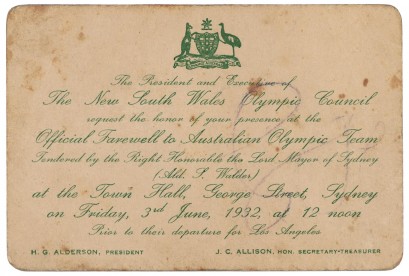 The President and Executive of
The New South Wales Olympic Council
request the honor of your presence at the
Official Farewell to Australian Olympic Team
Tendered by the Right Honorable the Lord Mayor of Sydney
(Ald. S. Walder)
at the Town Hall, George Street, Sydney
on Friday, 3rd June, 1932, at 12 noon
Prior to their departure for Los Angeles
H. G. ALDERSON, PRESIDENT J. C. ALLISON, HON. SECRETARY-TREASURER